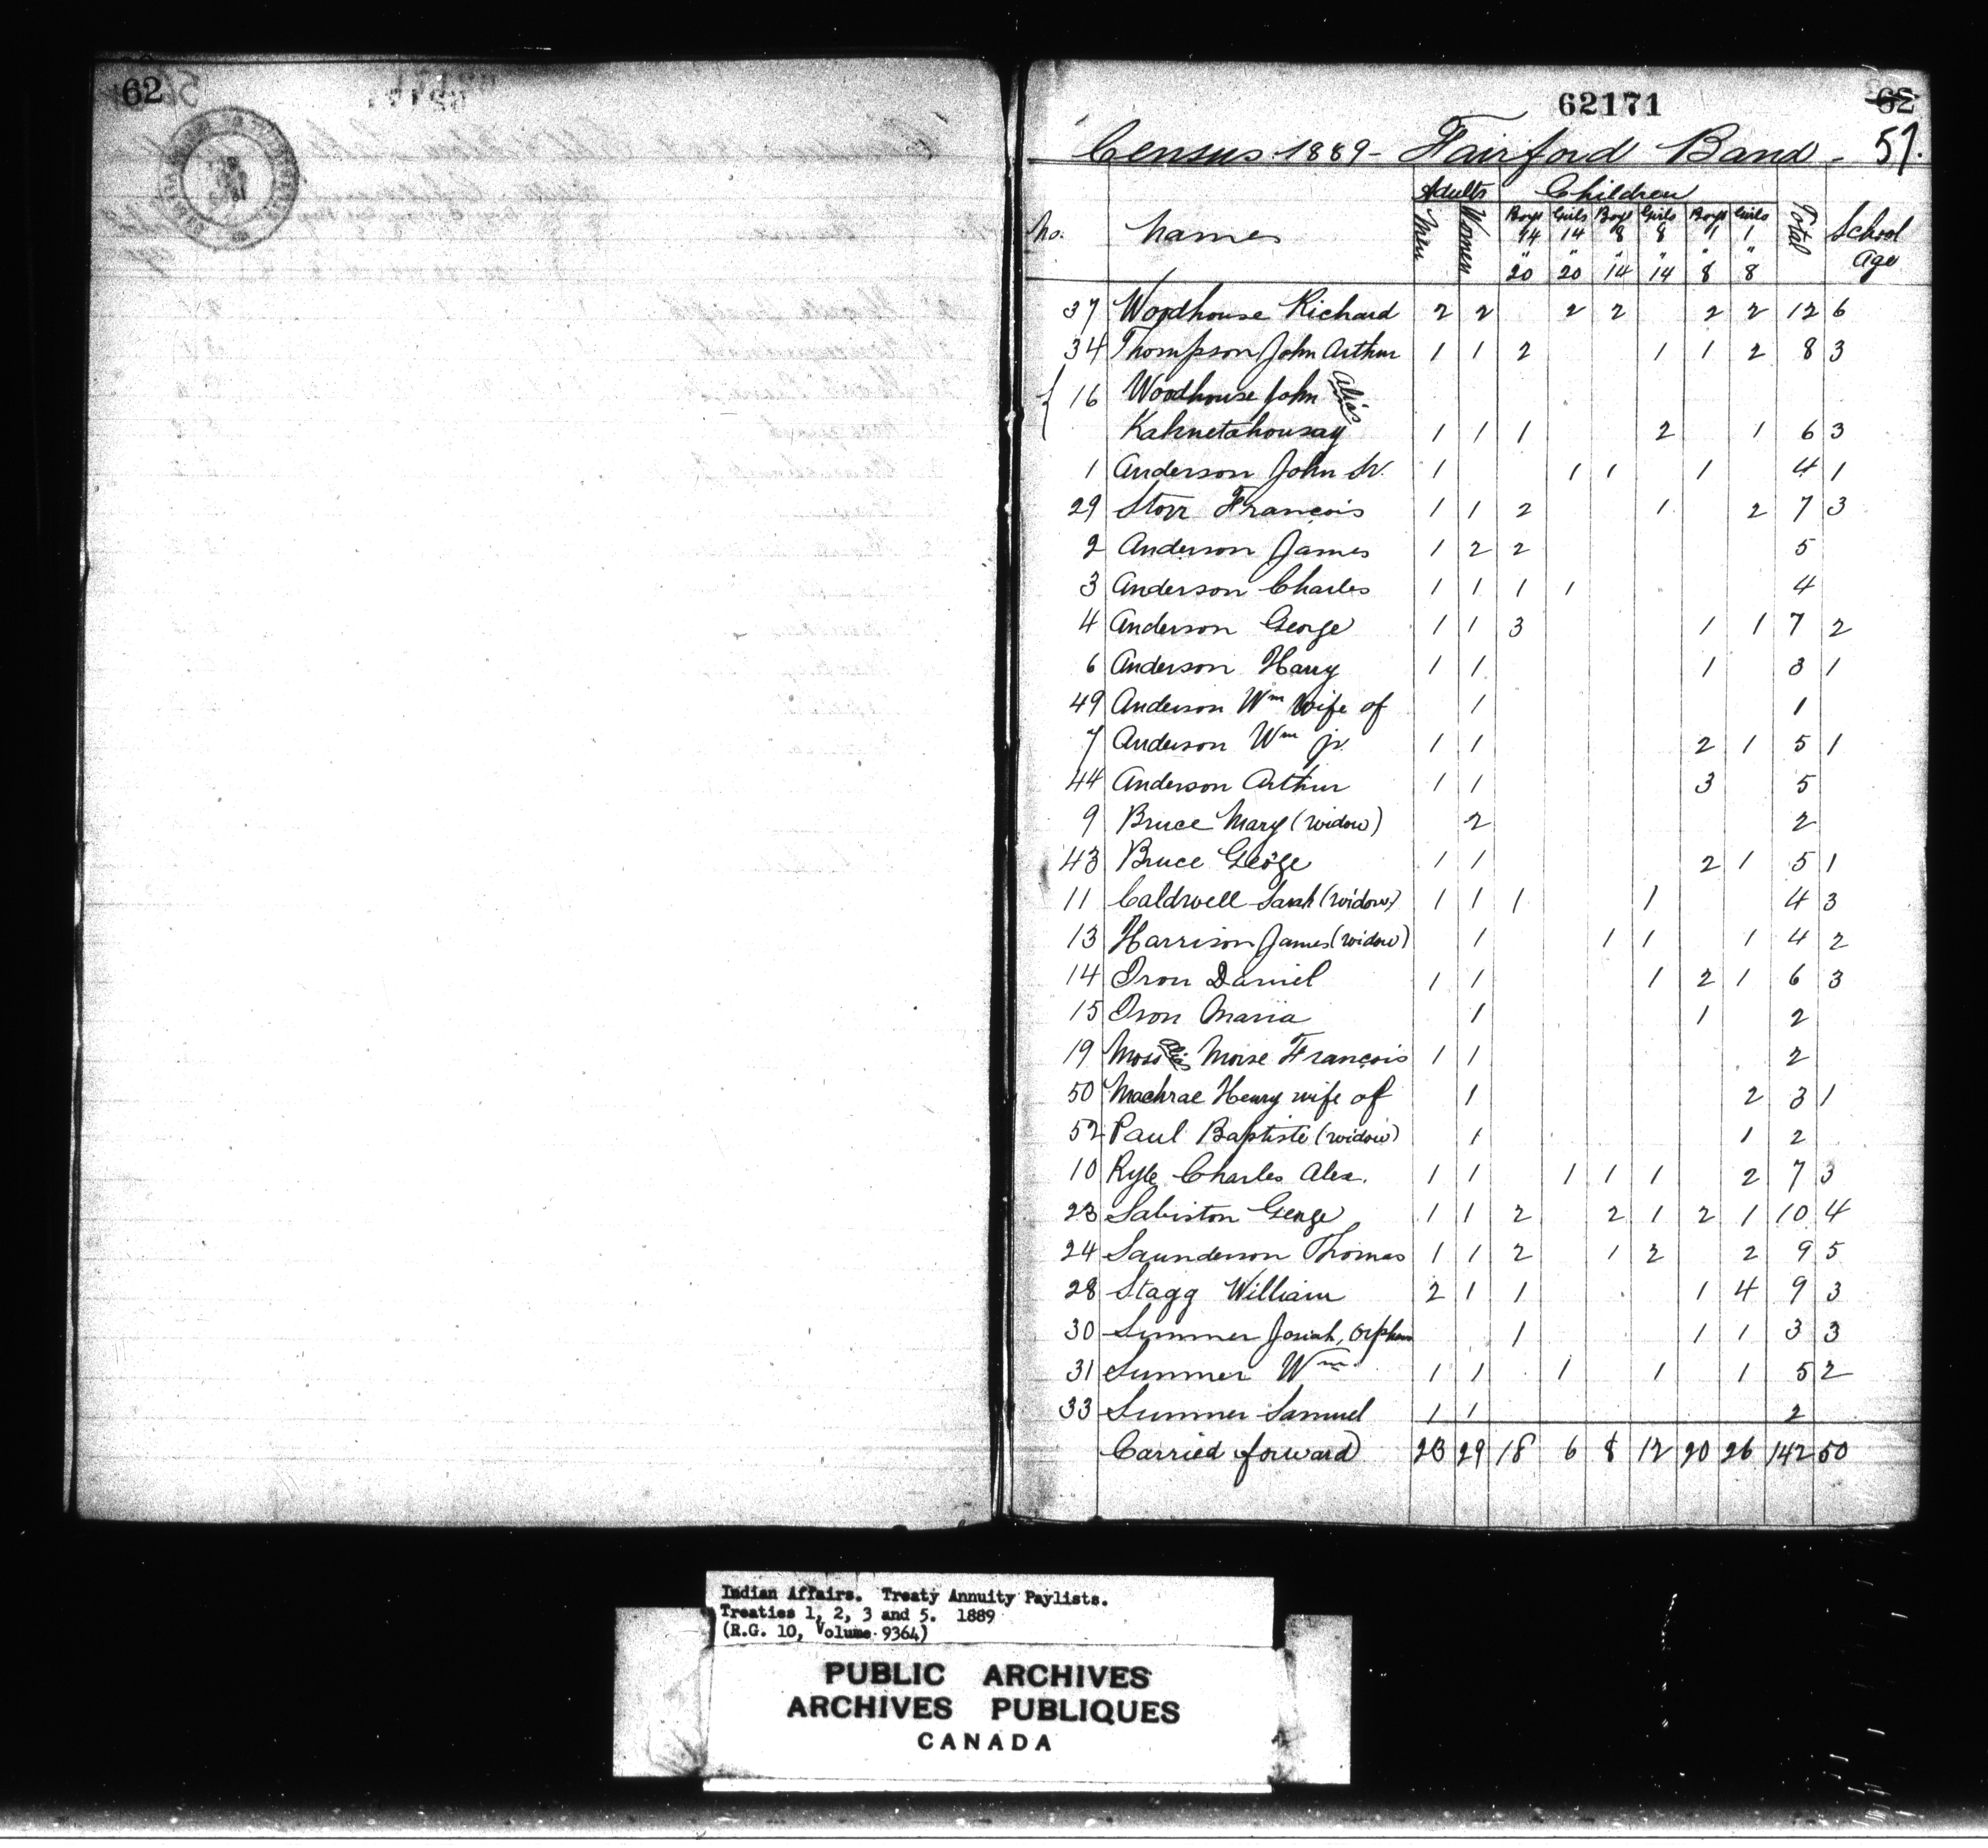 62
62171
62
Census 1889 - Fairford Band - 57.
Adults Children
No. Names Men Women Boys 14 " 20 Girls 14 " 20 Boys 8 " 14 Girls 8 " 14 Boys 1 " 8 Girls 1 " 8 Total School Age
37 Woodhouse Richard 2 2 2 2 2 2 12 6
34 Thompson John Arthur 1 1 2 1 1 2 8 3
16 Woodhouse John alias
Kahnetahousay 1 1 1 2 1 6 3
1 Anderson John Sr. 1 1 1 1 4 1
29 Storr François 1 1 2 1 2 7 3
2 Anderson James 1 2 2 5
3 Anderson Charles 1 1 1 1 4
4 Anderson George 1 1 3 1 1 7 2
6 Anderson Harry 1 1 1 3 1
49 Anderson Wm Wife of 1 1
7 Anderson Wm jr. 1 1 2 1 5 1
44 Anderson Arthur 1 1 3 5
9 Bruce Mary (widow) 2 2
43 Bruce George 1 1 2 1 5 1
11 Caldwell Sarah (widow) 1 1 1 1 4 3
13 Harrison James (widow) 1 1 1 1 4 2
14 Iron Daniel 1 1 1 2 1 6 3
15 Iron Maria 1 1 2
19 Moso alias Moise François 1 1 2
50 Machrae Henry wife of 1 2 3 1
52 Paul Baptiste (widow) 1 1 2
10 Ryle Charles Alex. 1 1 1 1 1 2 7 3
23 Sabiston George 1 1 2 2 1 2 1 10 4
24 Saunderson Thomas 1 1 2 1 2 2 9 5
28 Stagg William 2 1 1 1 4 9 3
30 Summer Josiah, Orphan 1 1 1 3 3
31 Summer Wm 1 1 1 1 1 5 2
33 Summer Samuel 1 1 2
Carried forward 23 29 18 6 8 12 20 26 142 50
Indian Affairs. Treaty Annuity Paylists.
Treaties 1, 2, 3 and 5. 1889
(R.G. 10, Volume 9364)
PUBLIC ARCHIVES
ARCHIVES PUBLIQUES
CANADA